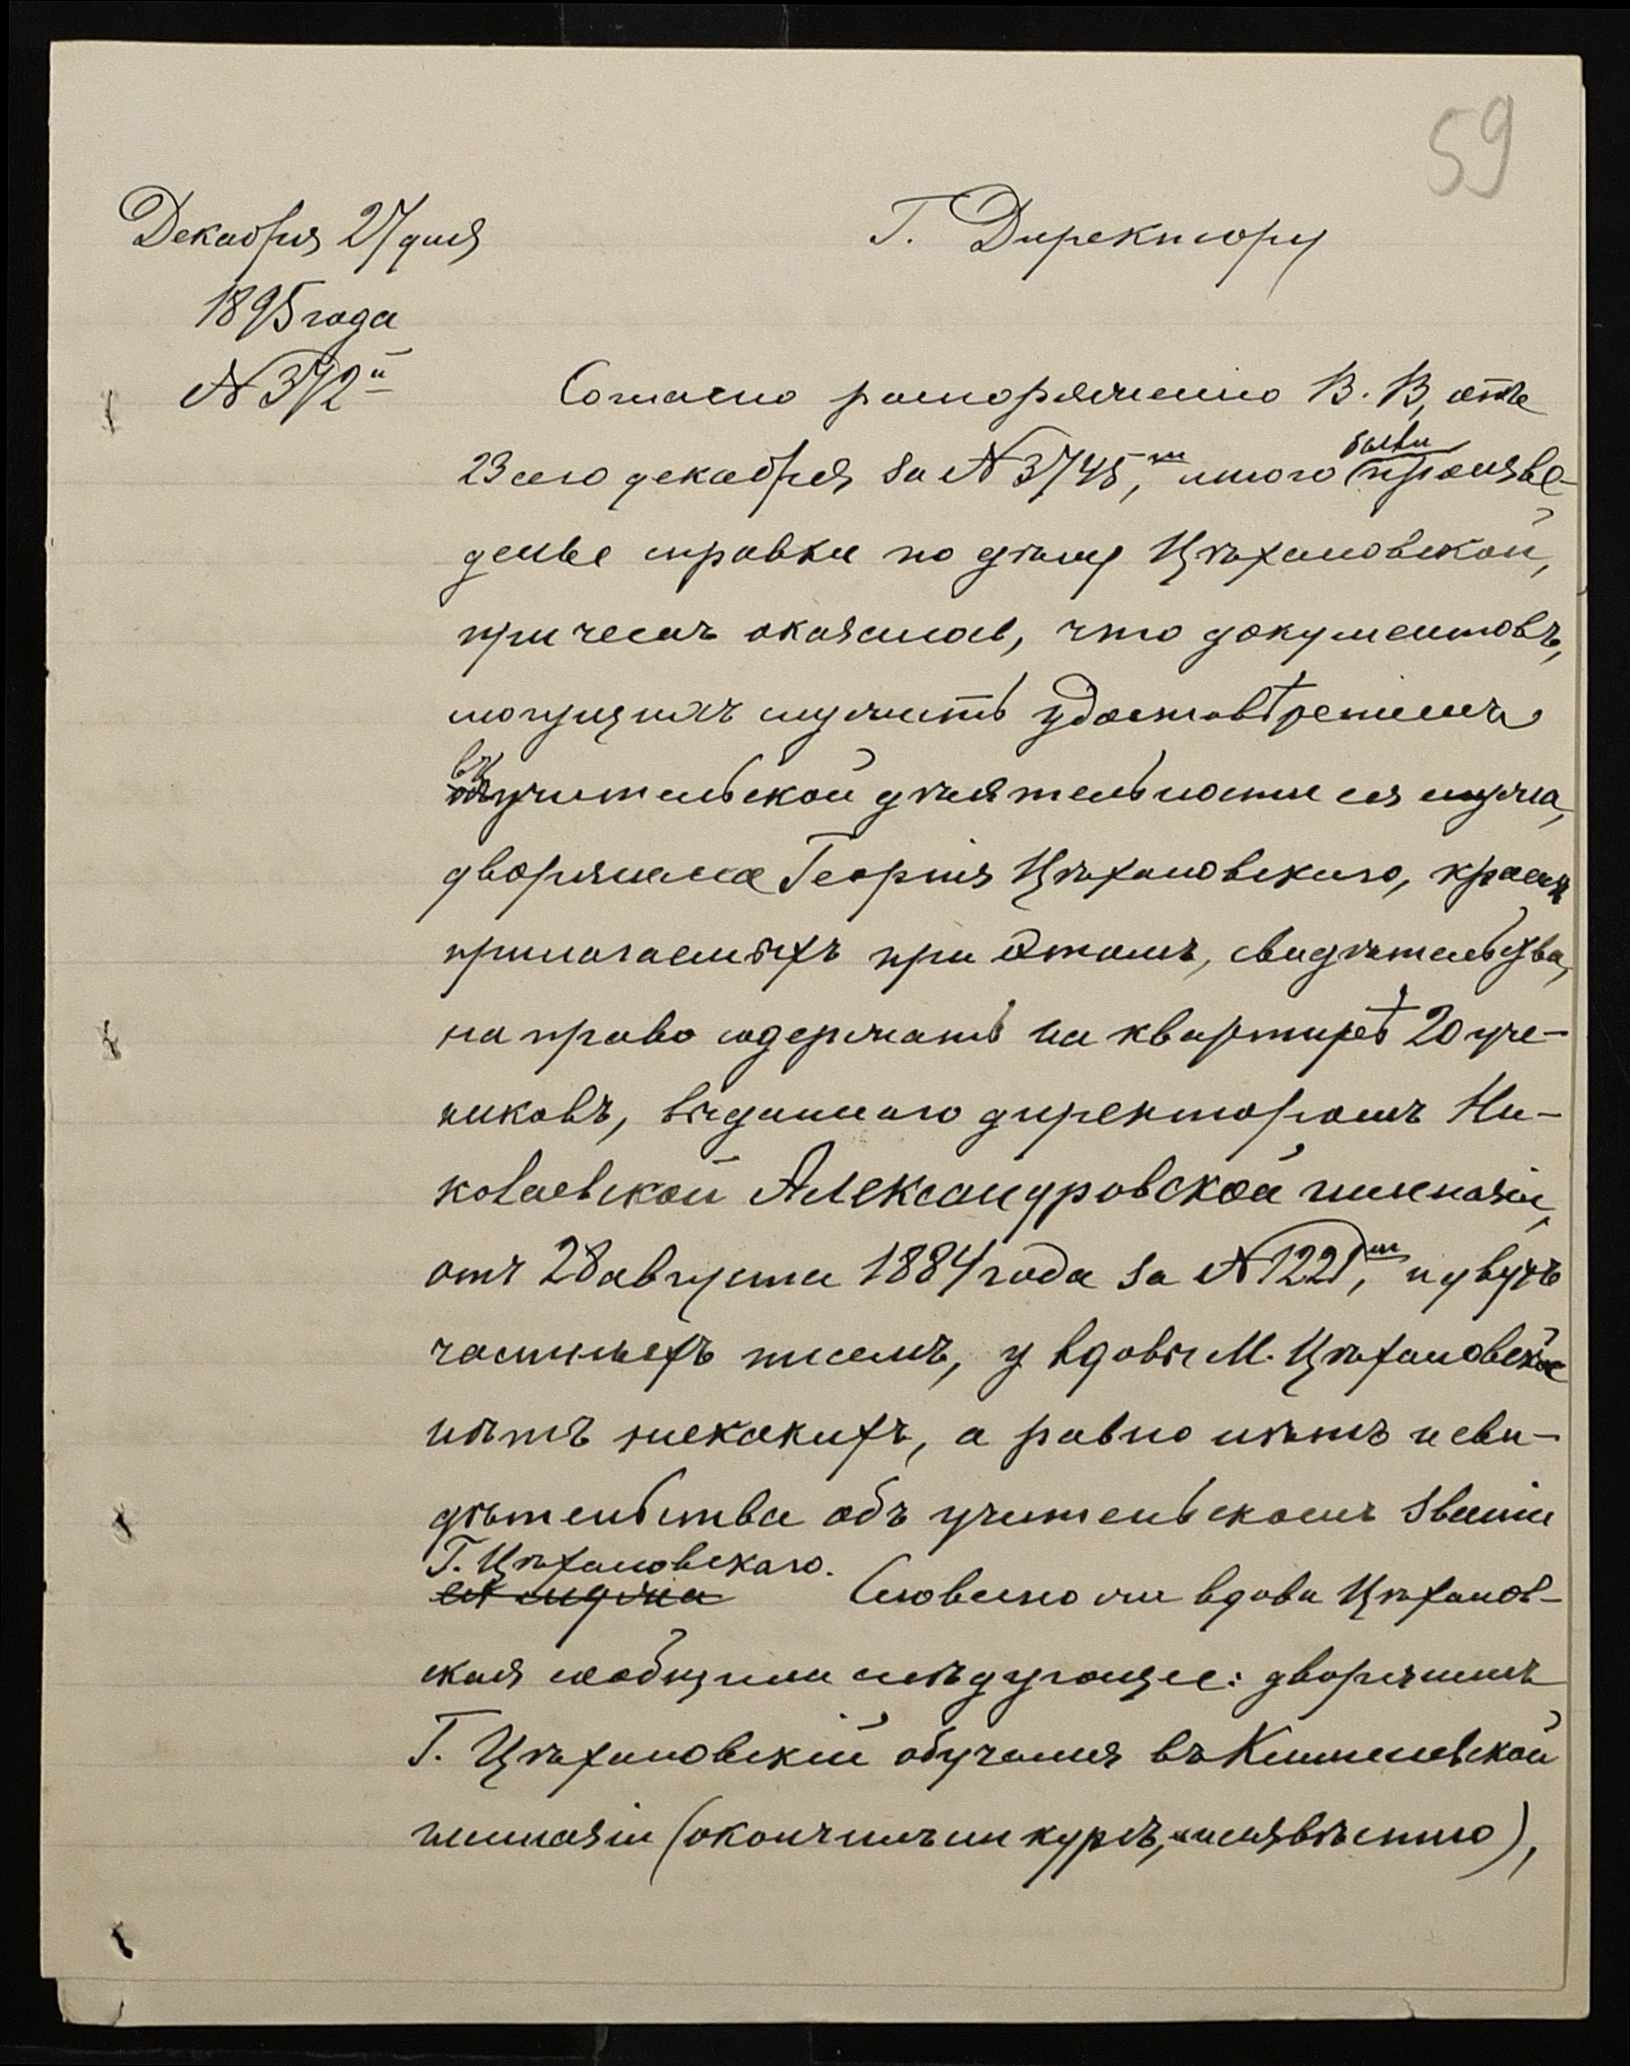 59
Декабря 27 дня
1895 года
№ 372й
Г. Директору
Согласно распоряженію В. В, отъ
23 сего декабря за № 3745,мъ мною были произве-
дены справки по дѣлу Цѣхановской,
при чемъ оказалось, что документовъ,
могущихъ служить удостовѣреніемъ
въ учительской дѣятельности ея мужа,
дворянина Георгія Цѣхановскаго, кромѣ
прилагаемыхъ при этомъ, свидѣтельства,
на право содержать на квартирѣ 20 уче-
никовъ, выданнаго директоромъ Ни-
колаевской Александровской гимназіи,
отъ 28 августа 1884 года за № 1221,мъ и двухъ
частныхъ писемъ, у вдовы М. Цѣхановской
нѣтъ никакихъ, а равно нѣтъ и сви-
дѣтельства объ учительскомъ званіи
Г. Цѣхановскаго.
ея мужа Словесно же вдова Цѣханов-
ская сообщила слѣдующее: дворянинъ
Г. Цѣхановскій обучался въ Кишиневской
гимназіи (окончилъ ли курсъ, неизвѣстно),